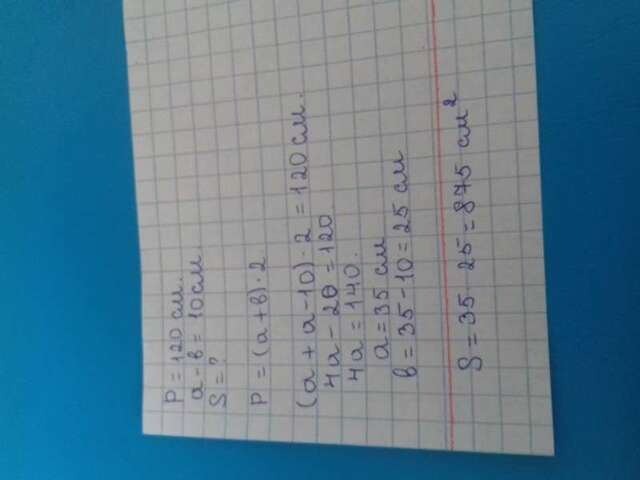 P = 120 см.
a - в = 10 см
S = ?
P = (a + в) · 2
(a + a - 10) · 2 = 120 см.
4a - 20 = 120.
4a = 140.
a = 35 см
в = 35 - 10 = 25 см
S = 35 25 = 875 см²